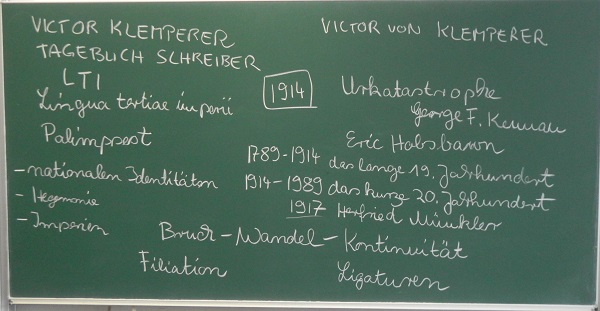 VICTOR KLEMPERER
TAGEBUCH SCHREIBER
LTI
Lingua tertiae imperii
Palimpsest
- nationalen Identitäten
- Hegemonie
- Imperien
VICTOR VON KLEMPERER
1914
Urkatastrophe
George F. Kennan
Eric Hobsbawn
1789-1914 das lange 19. Jahrhundert
1914-1989 das kurze 20. Jahrhundert
1917 Herfried Münkler
Bruch - Wandel - Kontinuität
Filiation
Ligaturen